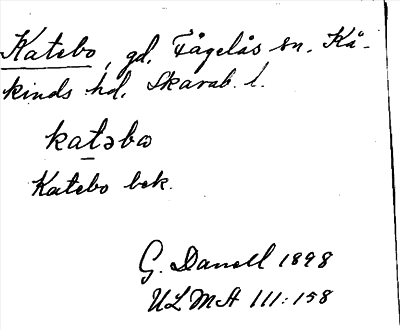 Katebo, gd, Fågelås sn. Kå-
kinds hd, Skarab. l.
katəbω
Katebo bek.
G. Danell 1898
ULMA 111:158